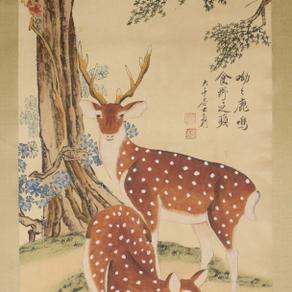 呦々鹿鳴
食野之蘋
大千居士爰